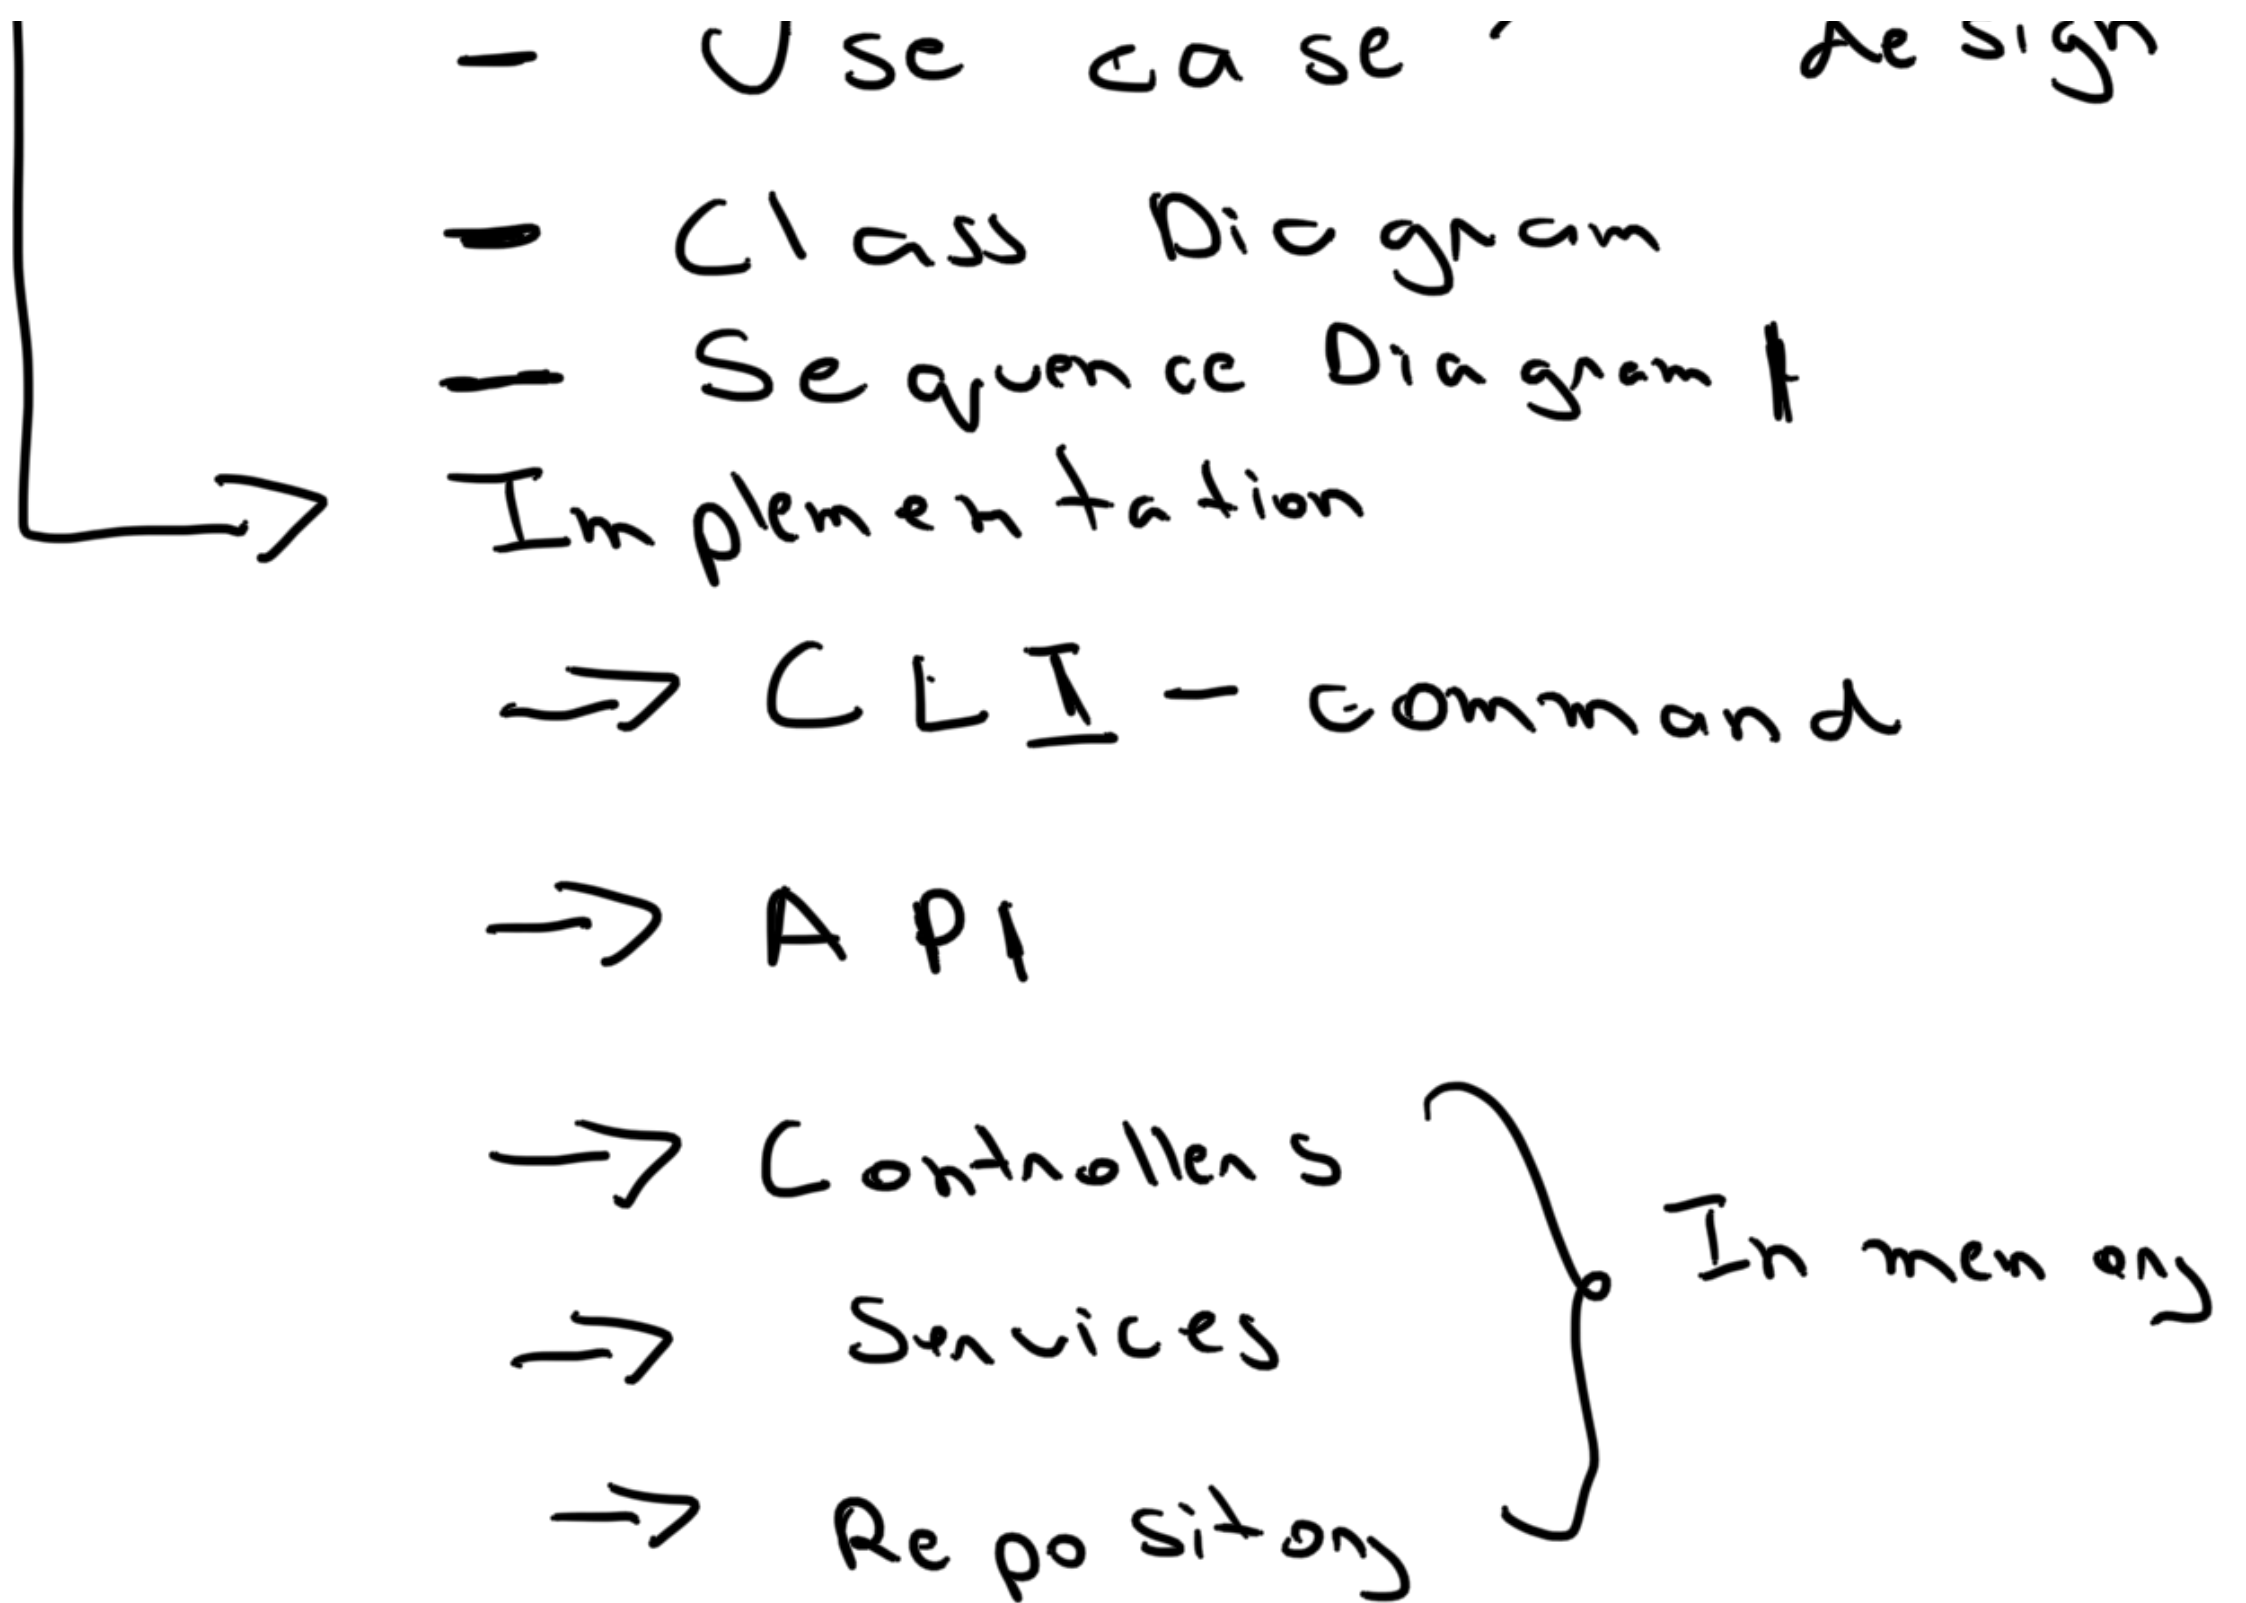 - Use case design
- Class Diagram
- Sequence Diagram
Implementation
→ CLI - command
→ API
→ Controllers
→ Services
→ Repository
In memory